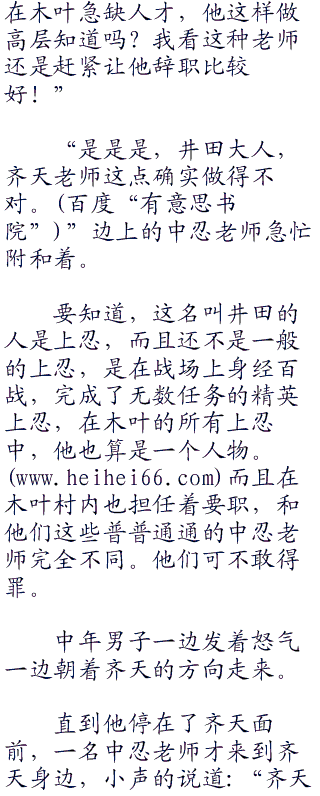 在木叶急缺人才，他这样做
高层知道吗？我看这种老师
还是赶紧让他辞职比较
好！”
“是是是，井田大人，
齐天老师这点确实做得不
对。(百度“有意思书
院”)”边上的中忍老师急忙
附和着。
要知道，这名叫井田的
人是上忍，而且还不是一般
的上忍，是在战场上身经百
战，完成了无数任务的精英
上忍，在木叶的所有上忍
中，他也算是一个人物。
(www.heihei66.com)而且在
木叶村内也担任着要职，和
他们这些普普通通的中忍老
师完全不同。他们可不敢得
罪。
中年男子一边发着怒气
一边朝着齐天的方向走来。
直到他停在了齐天面
前，一名中忍老师才来到齐
天身边，小声的说道：“齐天